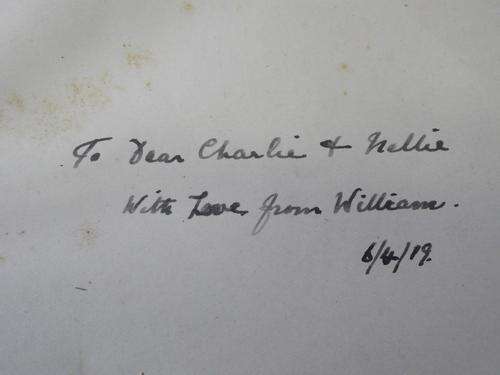 To Dear Charlie & Nellie
With Love from William.
6/4/19.